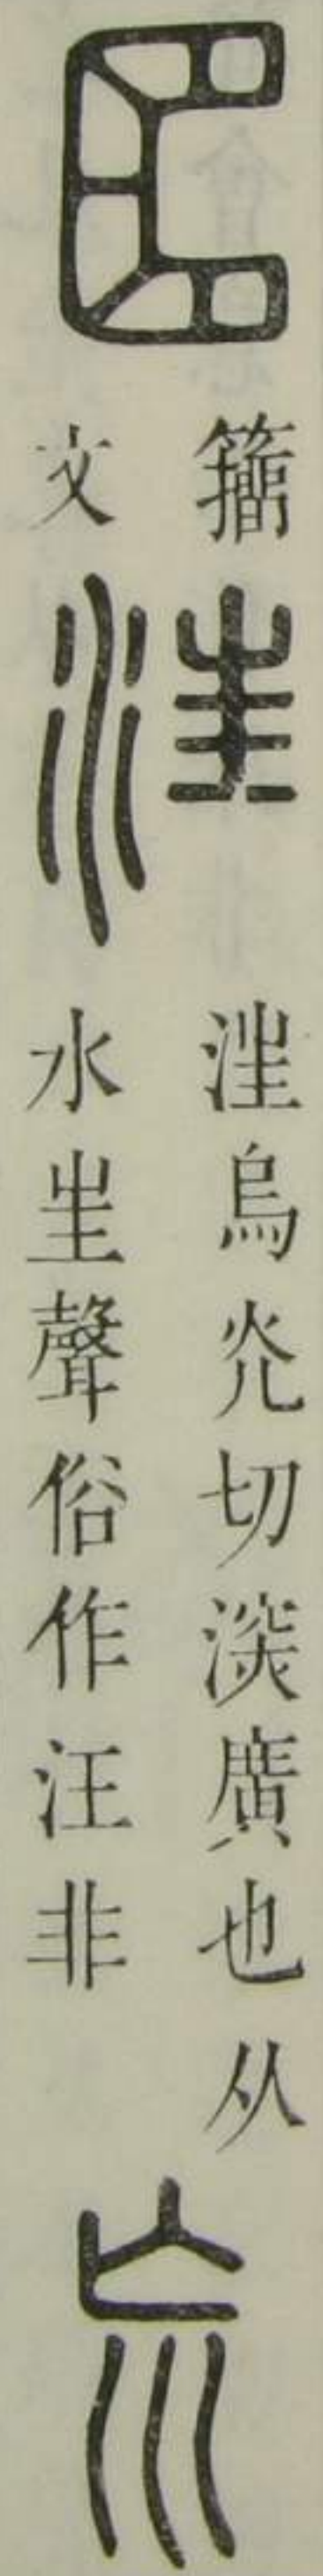 匚
籒
文
㳹
㳹烏灮切㴱廣也从
水㞷聲俗作汪非
巟